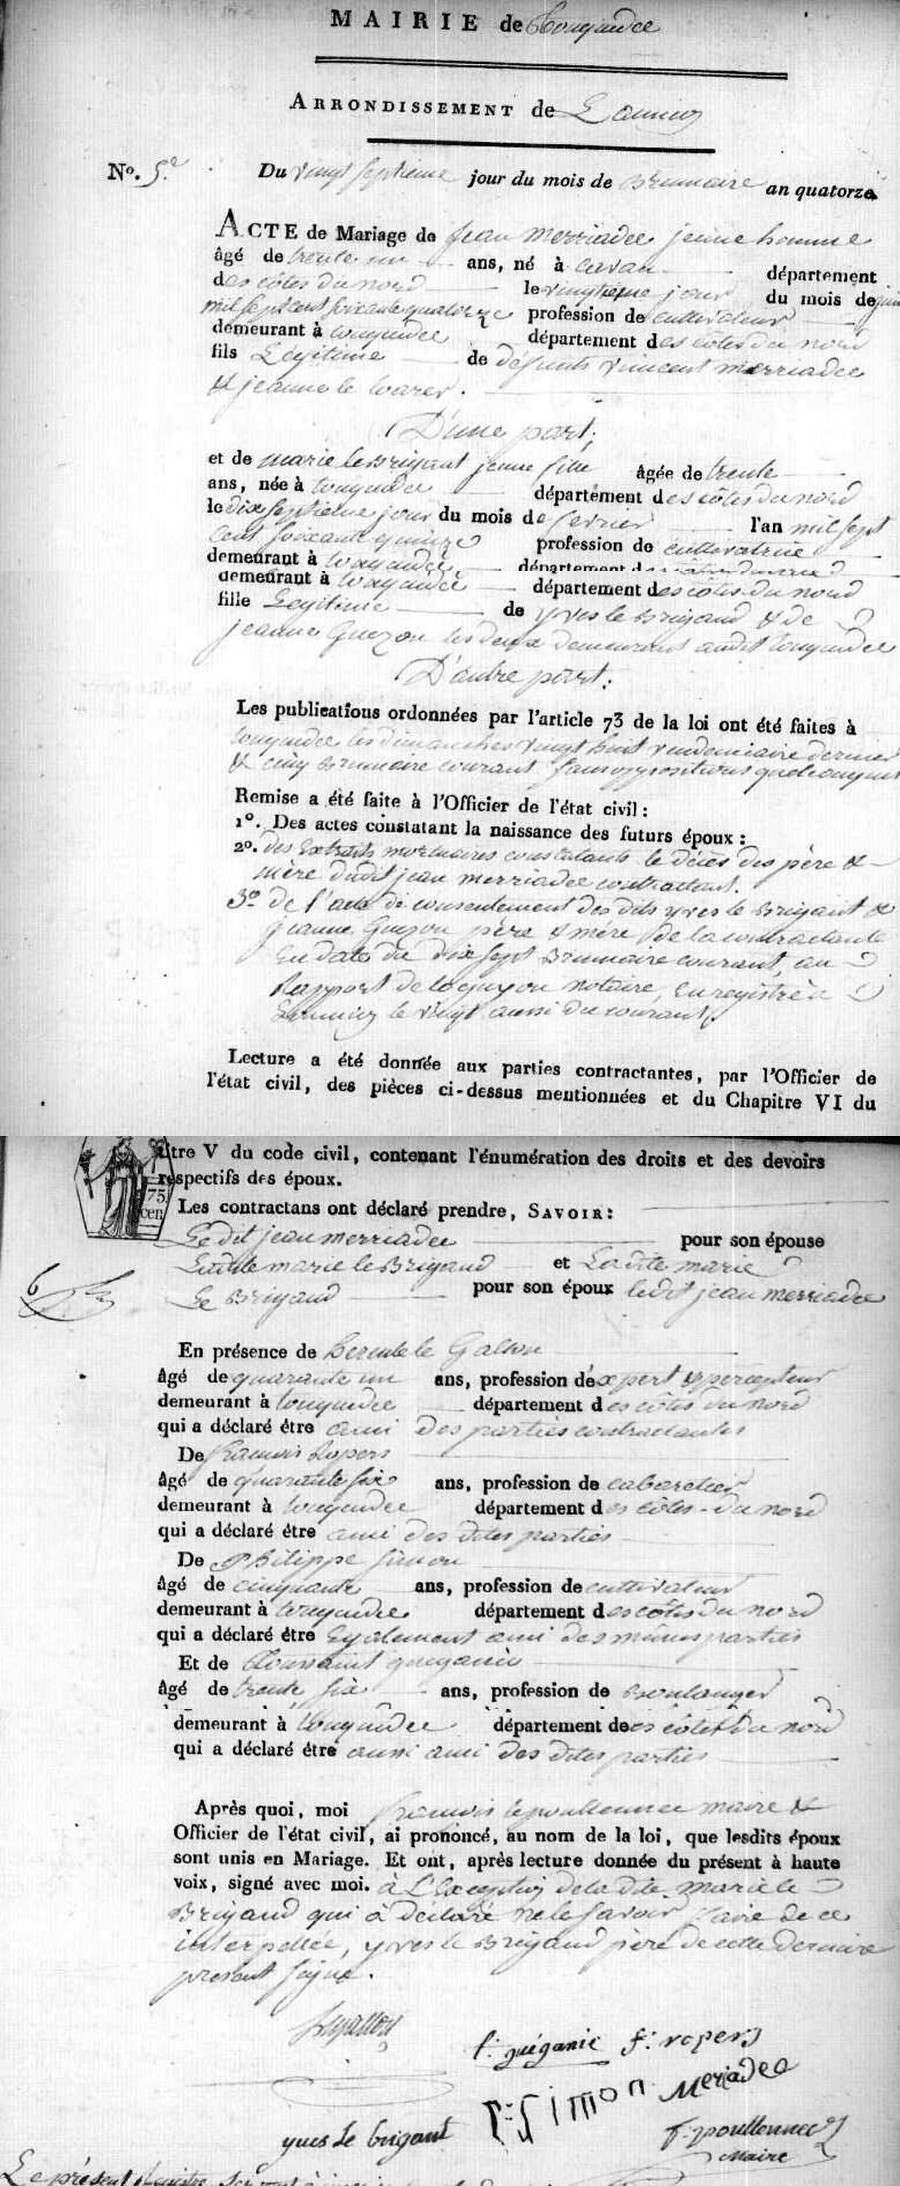 MAIRIE de Tonquédec
ARRONDISSEMENT de Lannion
No. 5e
Du vingt septieme jour du mois de Brumaire an quatorze
ACTE de Mariage de Jean merriadec jeune homme
âgé de trente un ans, né à Cavan département
des côtes du nord le vingtieme jour du mois de juin
mil sept cent soixante quatorze profession de cultivateur
demeurant à tonquedec département des côtes du nord
fils Legitime de défunts vincent merriadec
& jeanne le loarer.
D'une part;
et de marie le Brigant jeune fille âgée de trente
ans, née à tonquedec département des côtes du nord
le dix septieme jour du mois de fevrier l'an mil sept
cent soixante quinze profession de cultivatrice
demeurant à tonquedec département d
demeurant à tonquedec département des côtes du nord
fille Legitime de yves le Brigand & de
jeanne Guezou les deux demeurant audit tonquedec
D'autre part.
Les publications ordonnées par l'article 73 de la loi ont été faites à
tonquedec les dimanches vingt huit vendemiaire dernier
& cinq Brumaire courant sans oppositions quelconques
Remise a été faite à l'Officier de l'état civil :
1o. Des actes constatant la naissance des futurs époux :
2o. des Extraits mortuaires constatants le décès des père &
mère dudit jean merriadec contractant.
3o de l'acte de consentement des dits yves le Brigant &
jeanne Guezou père & mère de la contractante
En date du dix sept Brumaire courant, au
Rapport de le guyon notaire, Enregistré à
Lannion le vingt aussi du courant.
Lecture a été donnée aux parties contractantes, par l'Officier de
l'état civil, des pièces ci-dessus mentionnées et du Chapitre VI du
titre V du code civil, contenant l'énumération des droits et des devoirs
respectifs des époux.
75
cen
Les contractans ont déclaré prendre, SAVOIR :
Le dit jean merriadec pour son épouse
Ladite marie le Brigand et La dite marie
Le Brigand pour son époux ledit jean merriadec
6
En présence de hercule le Gallou
âgé de quarante un ans, profession d'expert & percepteur
demeurant à tonquedec département des côtes du nord
qui a déclaré être ami des parties contractantes
De francois Ropers
âgé de quarante six ans, profession de cabaretier
demeurant à tonquedec département des côtes-du nord
qui a déclaré être ami des dites parties
De Philippe Simon
âgé de cinquante ans, profession de cultivateur
demeurant à tonquedec département des côtes du nord
qui a déclaré être Egalement ami des mêmes parties
Et de Toussaint queganic
âgé de trente six ans, profession de Boulanger
demeurant à tonquedec département des côtes du nord
qui a déclaré être aussi ami des dites parties
Après quoi, moi francois le poullennec maire &
Officier de l'état civil, ai prononcé, au nom de la loi, que lesdits époux
sont unis en Mariage. Et ont, après lecture donnée du présent à haute
voix, signé avec moi. à L'Exception de la dite marie le
Brigand qui à déclaré ne le Savoir faire de ce
interpellée, yves le Brigand père de cette derniere
present signe.
t: guéganic f: ropers
P: Simon Meriadec
yves le brigant
f: poullennec
maire
Le présent Registre